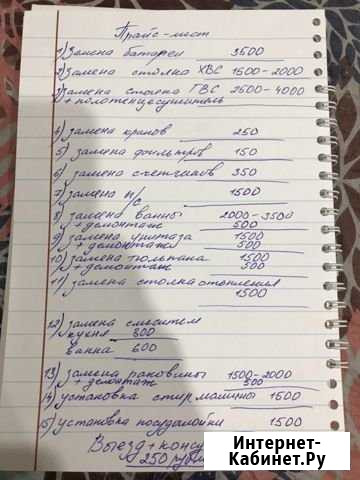 Прайс-лист
1) Замена батареи 3500
2) Замена стояка ХВС 1500-2000
3) Замена стояка ГВС 2500-4000
+ полотенцесушитель
4) замена кранов 250
5) замена фильтров 150
6) замена счетчиков 350
7) замена п/с 1500
8) замена ванны 2000-3500
+ демонтаж 500
9) замена унитаза 1500
+ демонтажа 500
10) замена тюльпана 1500
+ демонтаж 500
11) замена стояка отопления
1500
12) замена смесителя
кухня 800
ванна 600
13) замена раковины 1500-2000
+ демонтаж 500
14) установка стир машины 1500
15) установка посудомойки 1500
Выезд + консу
250 руб
Интернет-
Кабинет.Ру